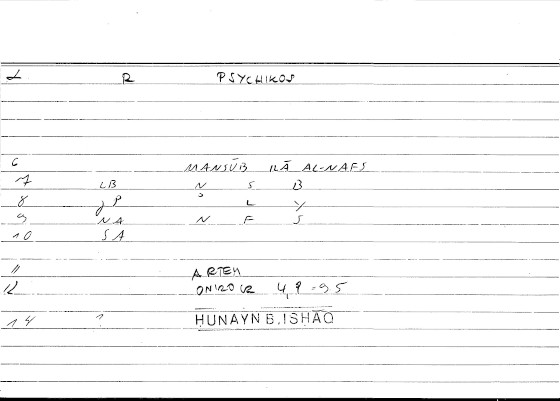 R PSYCHIKOS
6 MANSŪB ILĀ AL-NAFS
7 LB N S B
8 P L Y
9 NA N F S
10 SA
11 ARTEM
12 ONIROCR 4,9
14 ? HUNAYN B. ISHĀQ